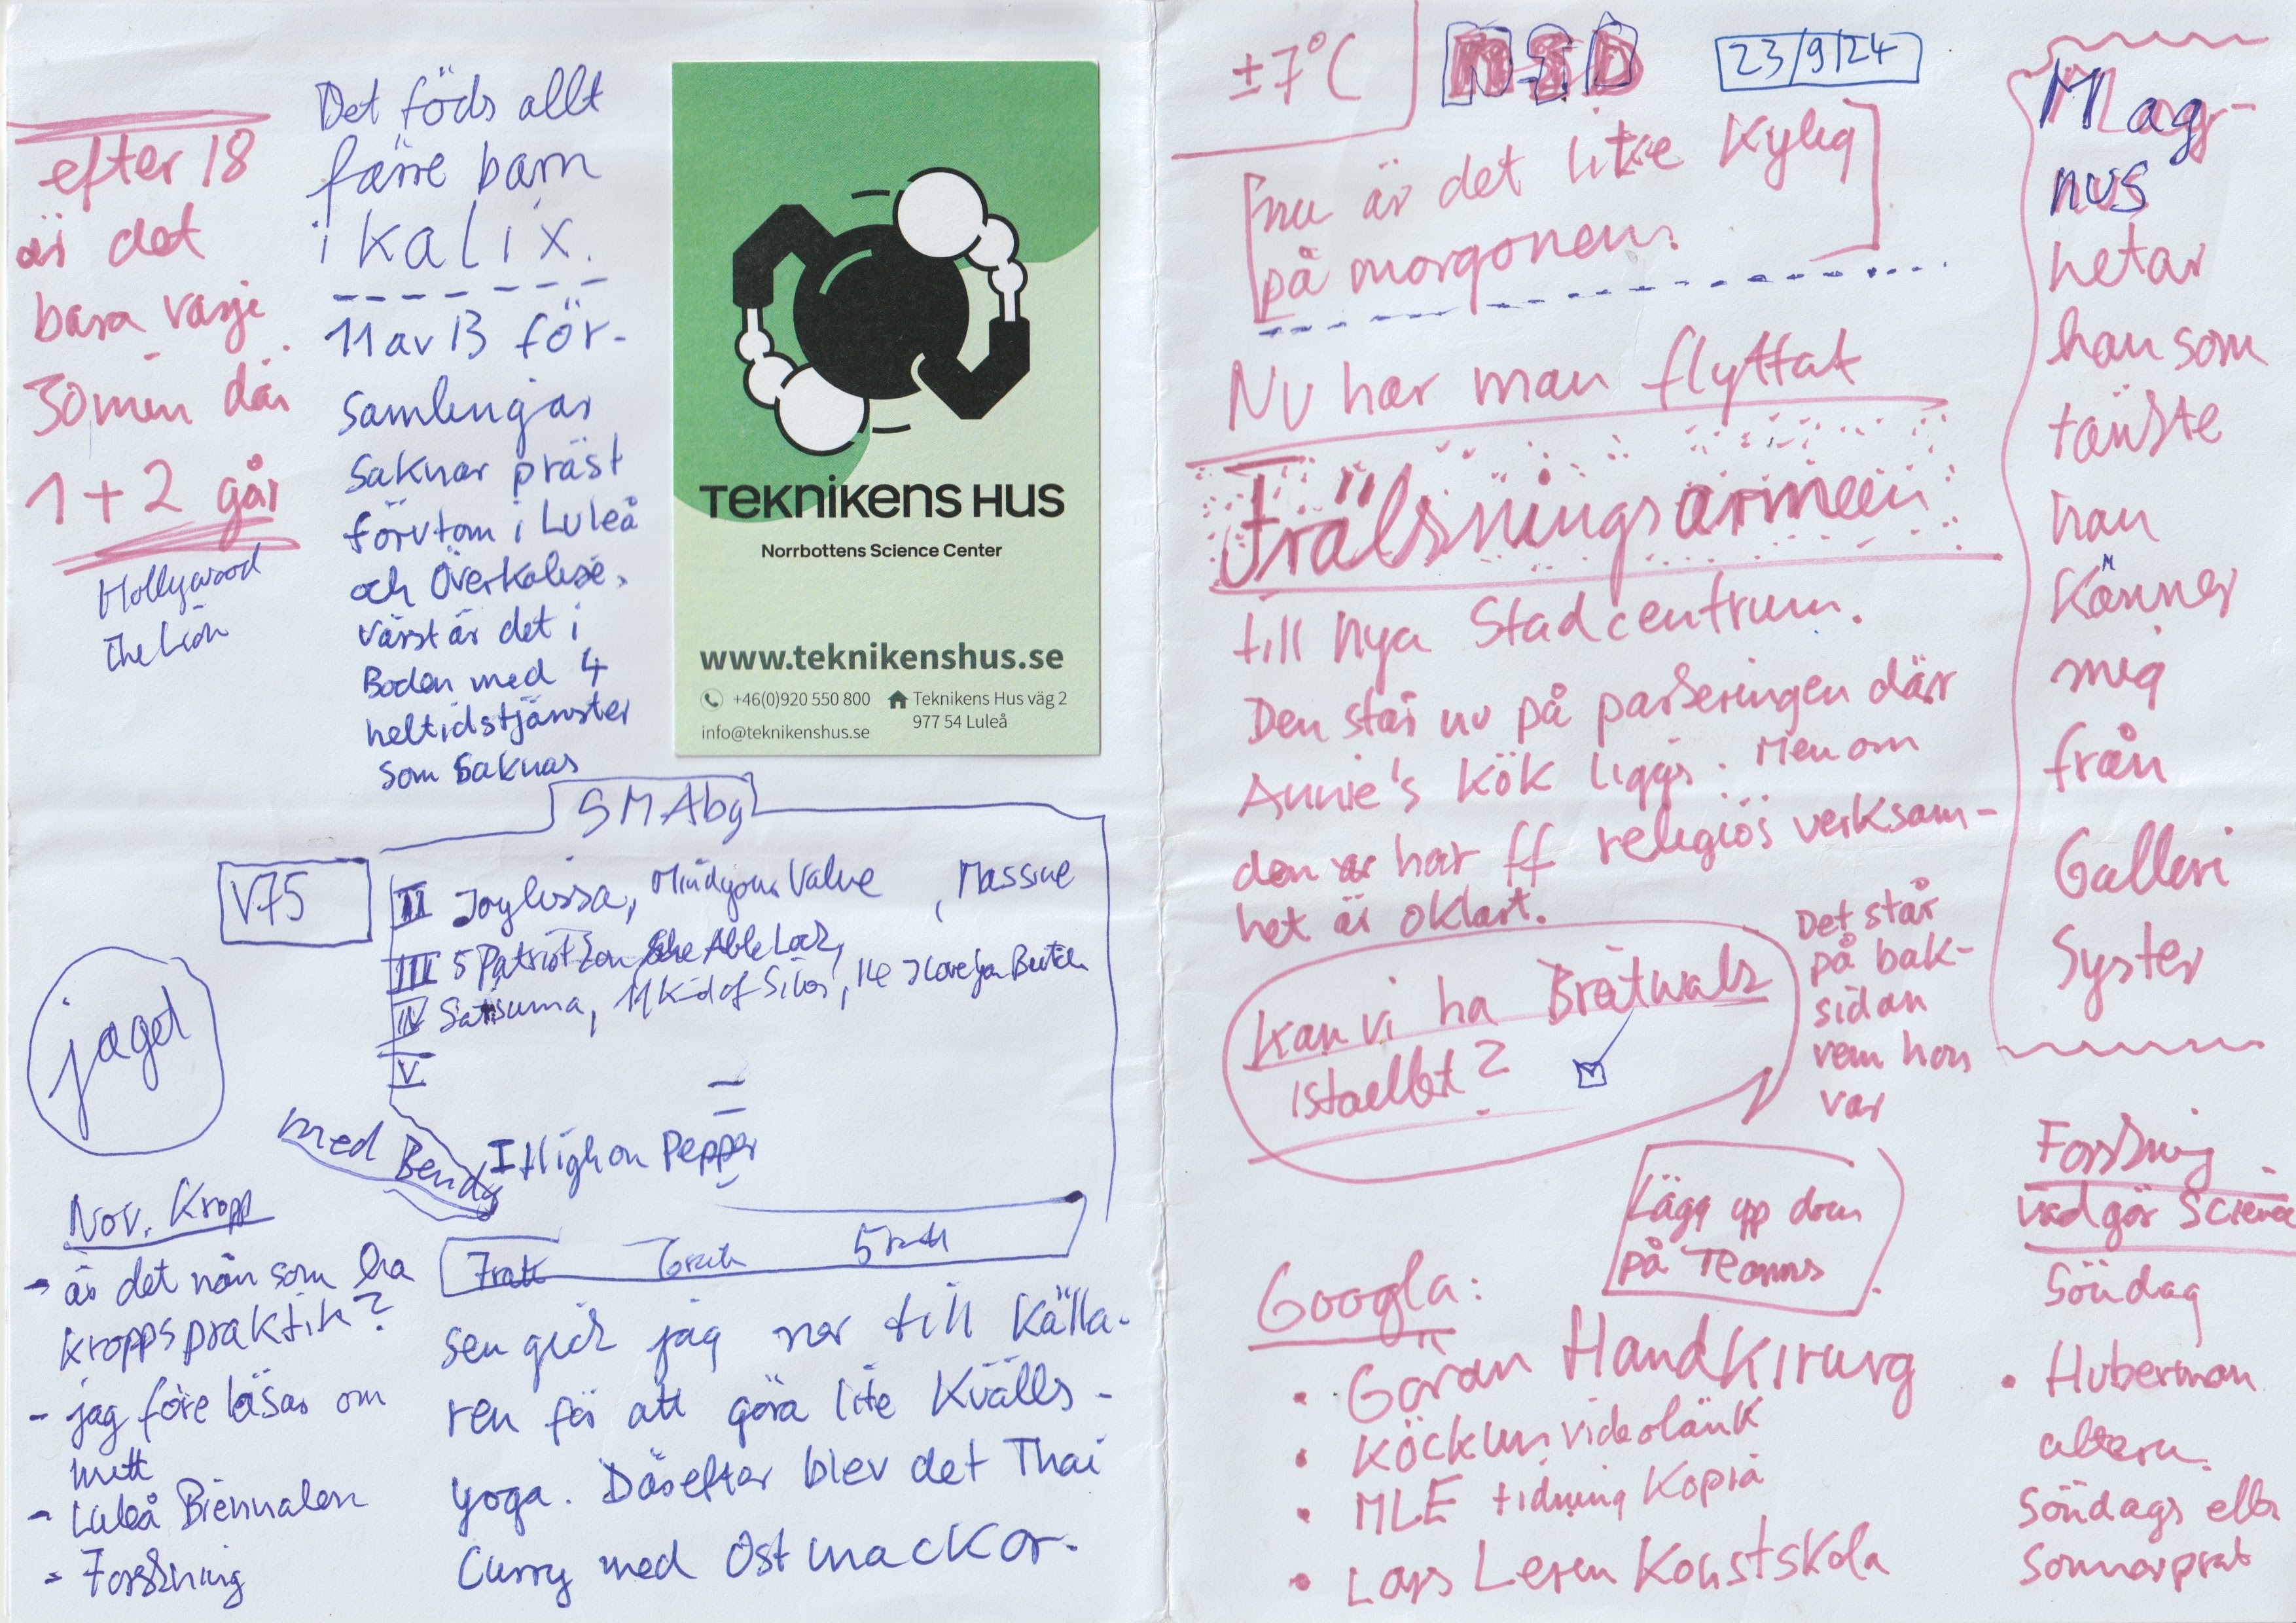 efter 18
är det
bara varje
30 min där
1+2 går
Hollywood
The Lion
Det föds allt
färre barn
i kalix.
11 av 13 för-
samlingar
saknar präst
förutom i Luleå
och Överkalix.
värst är det i
Boden med 4
heltidstjänster
som saknas
TEKNIKENS HUS
Norrbottens Science Center
www.teknikenshus.se
+46(0)920 550 800
Teknikens Hus väg 2
977 54 Luleå
info@teknikenshus.se
SMAbg
V75
II Joylissa, Mindyour Value, Massive
III 5 Patriot Zon Able Lock,
IV Satsuma, 11 Kid of, 14 I love you
V
I High on Pepper
med Bendy
jaget
7rätt 6rätt 5rätt
Nov. Kropp
- är det nån som ha
kroppspraktik?
- jag föreläsar om
mitt
- Luleå Biennalen
- Forskning
sen gick jag ner till källa-
ren för att göra lite Kvälls-
yoga. Däsefter blev det Thai
Curry med Ostmackor.
±7°C
NSD
23/9/24
[nu är det lite Kylig
på morgonen.]
Nu har man flyttat
Frälsningsarmeen
till nya Stadcentrum.
Den står nu på parkeringen där
Annie's kök liggs. Men om
den har ff religiös verksam-
het är oklart.
Kan vi ha Bratwals
istaellet?
Det står
på bak-
sidan
vem hon
var
Lägg upp dom
på Teams
Googla:
• Göran Handkirurg
• Köckum videolänk
• MLE tidning Kopia
• Lars Leren Konstskola
Mag-
nus
hetar
han som
tänkte
han
Känner
mig
från
Galleri
Syster
Forskning
vad gör Science
Söndag
• Huberman
altern.
Söndags eller
Sommarprat